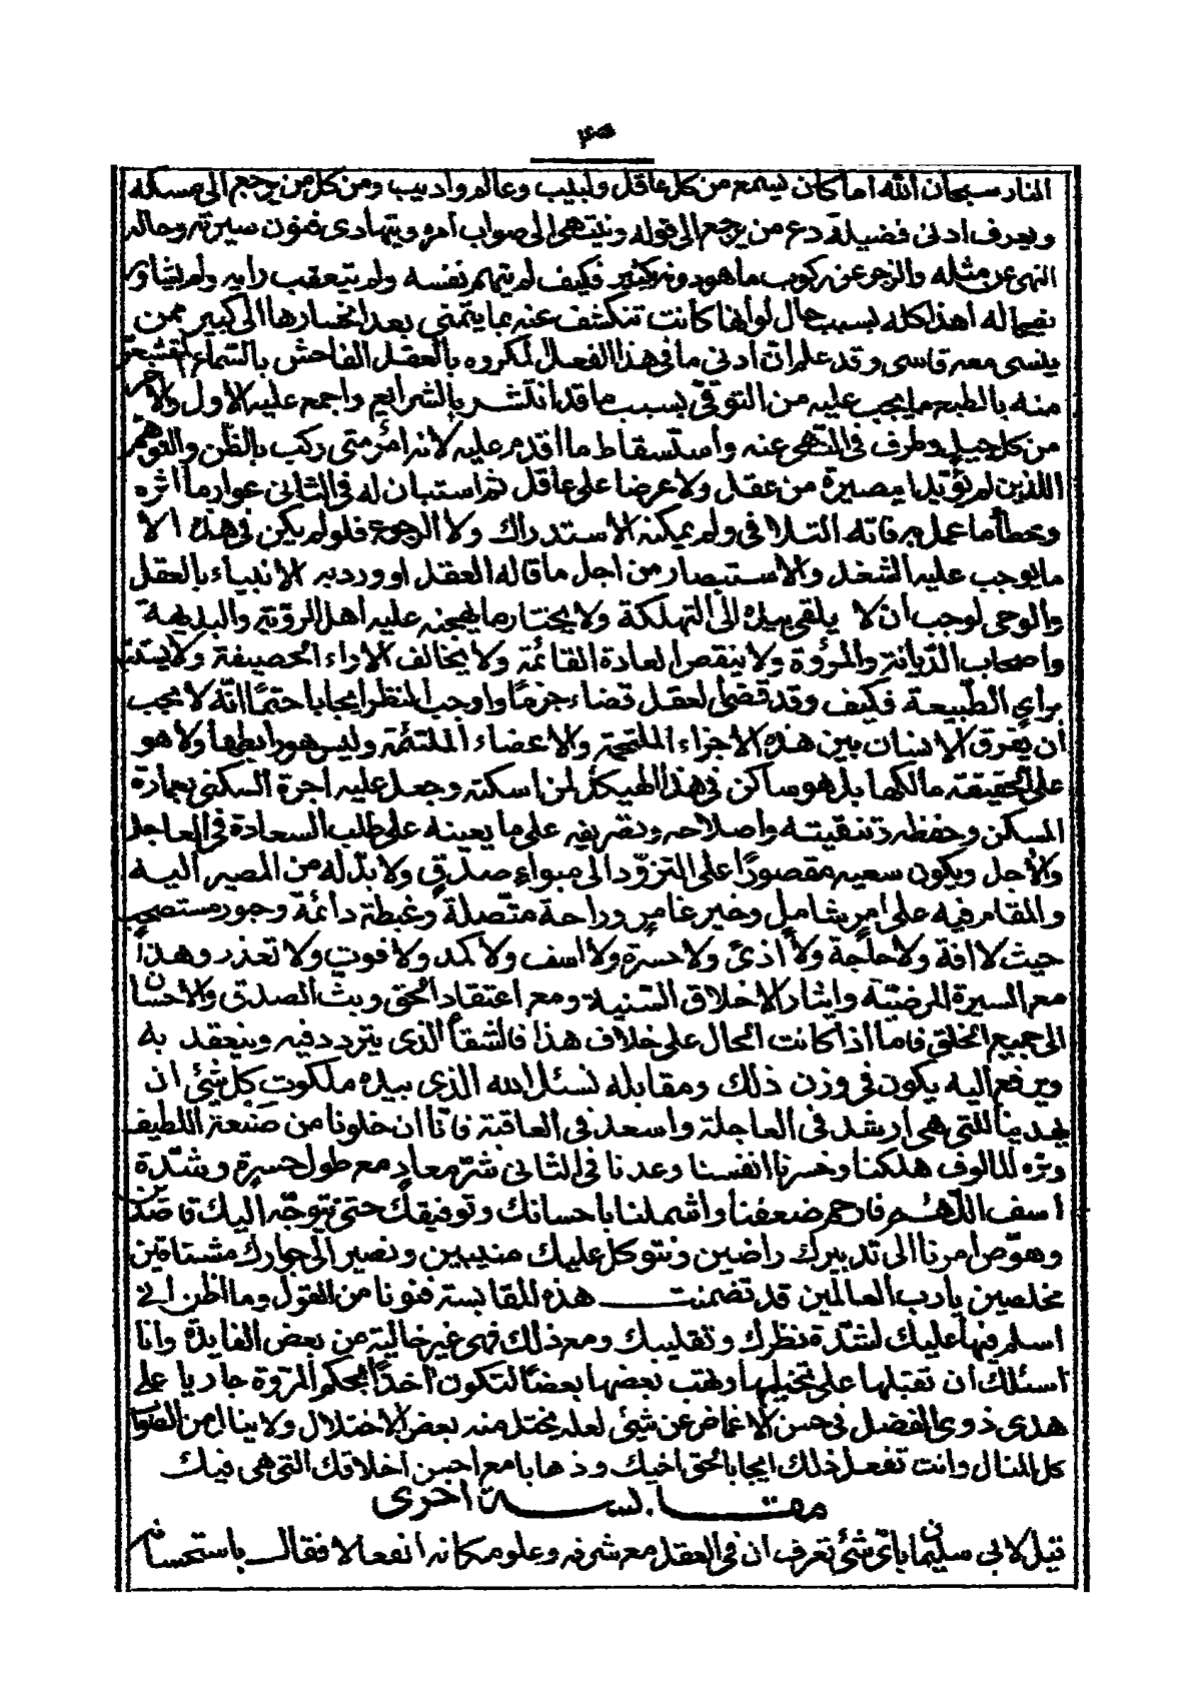 النار سبحان الله اما كان ليسمع من كل عاقل ولبيب وعالم واديب ومن كل من يرجع الى مسكه
ويعرف ادنى فضيلة دع من يرجع الى قوله وينتهى الى صواب امره ويتهادى فنون سيرته وحاله
النهى عن مثله والزجر عن ركوب ما هو دونه بكثير فكيف لم يتهم نفسه ولم يتعقب رايه ولم يشاور
نصحاء له اهذا كله لسبب حال لو انها كانت تنكشف عنه بما يتمنى بعد انحسارها الى كبير ممن
ينسى معه قاسى وقد علم ان ادنى ما فى هذا الفعل المكروه بالعقل الفاحش بالسماع المقشعر
منه بالطبع ما يجب عليه من التوقى بسبب ما قد انتشر بالشرايع واجمع عليه الاول والاخر
من كل جيل وطرف فى النهى عنه واستسقاط ما اقدم عليه لانه امر متى ركب بالظن والتوهم
اللذين لم يؤيدا ببصيرة من عقل ولا عرضا على عاقل ثم استبان له فى الثانى عوار ما اثره
وخطأ ما عمل به فاته التلافى ولم يمكنه الاستدراك ولا الرجوع فلو لم يكن فى هذا الا
ما يوجب عليه الشغل والاستبصار من اجل ما قاله العقل او ورد به الانبياء بالعقل
والوحى لوجب ان لا يلقى بيده الى التهلكة ولا يختار ما يهجنه عليه اهل الروية والبديهة
واصحاب الديانة والمروءة ولا ينقص العادة القائمة ولا يخالف الاراء الحصيفة ولا يستبد
براى الطبيعة فكيف وقد قضى العقل قضاء جزما واوجب النظر ايجابا حتما انه لا يجب
أن يفرق الانسان بين هذه الاجزاء الملتحمة والاعضاء الملتئمة وليس هو رابطها ولا هو
على الحقيقة مالكها بل هو ساكن فى هذا الهيكل لمن اسكنه وجعل عليه اجرة السكنى بعمارة
المسكن وحفظه وتنقيته واصلاحه وتصريفه على ما يعينه على طلب السعادة فى العاجل
والاجل ويكون سعيه مقصورًا على التزود الى مبواء صدق ولا بد له من المصير اليه
والمقام فيه على امر شامل وخير غامر وراحة متصلة وغبطة دائمة وحبور مستصحب
حيث لا افة ولا حاجة ولا اذى ولا حسرة ولا اسف ولا كمد ولا فوت ولا تعذر وهذا
مع السيرة المرضية وايثار الاخلاق السنية ومع اعتقاد الحق وبث الصدق والاحسان
الى جميع الخلق فاما اذا كانت الحال على خلاف هذا فالشقأ الذى يتردد فيه وينعقد به
ويرفع اليه يكون فى وزن ذلك ومقابله نسئل الله الذى بيده ملكوت كل شئ ان
يهدينا للتى هى ارشد فى العاجلة واسعد فى العاقبة فانا ان خلونا من صنعة اللطيف
وبره المالوف هلكنا وخسرنا انفسنا وعدنا فى الثانى شر معاد مع طول حسرة وشدة
اسف اللهم فارحم ضعفنا واشملنا باحسانك وتوفيقك حتى نتوجه اليك قاصدين
وهوّض امرنا الى تدبيرك راضين ونتوكل عليك منيبين ونصير الى جوارك مشتاقين
مخلصين يا رب العالمين قد تضمنت هذه المقابسة فنونا من القول وما اظن انى
اسلم فيها عليك لشدة نظرك وتقليبك ومع ذلك فهى غير خالية من بعض الفايدة وانا
اسئلك ان تقبلها على تخيلها وتهب بعضها بعضا لتكون اخذًا بحكم المروة جاريا على
هدى ذوى الفضل فى حسن الاغماض عن شئ لعله يختل منه بعض الاختلال ولا ينال من الصواب
كل المنال وانت تفعل ذلك ايجابا لحق اخيك وذهابا مع احسن اخلاقك التى هى فيك
مقابسة اخرى
قيل لابى سليمان باى شئ تعرف ان فى العقل مع شرفه وعلو مكانه انفعالا فقال باستحسانه